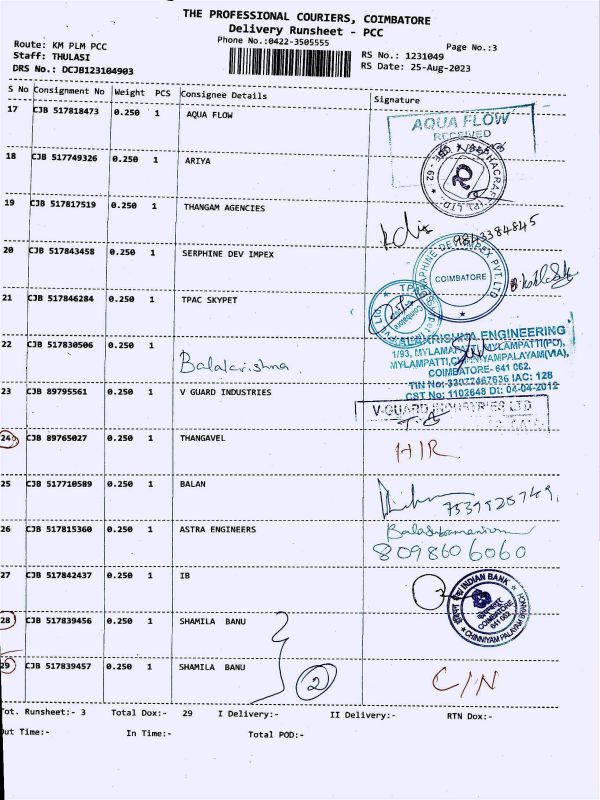 THE PROFESSIONAL COURIERS, COIMBATORE
Delivery Runsheet - PCC
Phone No.:0422-3505555
Page No.:3
Route: KM PLM PCC
Staff: THULASI
DRS No.: DCJB123104903
RS No.: 1231049
RS Date: 25-Aug-2023
S No Consignment No Weight PCS Consignee Details Signature
17 CJB 517818473 0.250 1 AQUA FLOW
AQUA FLOW
RECEIVED
18 CJB 517749326 0.250 1 ARIYA
19 CJB 517817519 0.250 1 THANGAM AGENCIES
9843384845
20 CJB 517843458 0.250 1 SERPHINE DEV IMPEX
COIMBATORE
21 CJB 517846284 0.250 1 TPAC SKYPET
22 CJB 517830506 0.250 1
Balakrishna
BALAKRISHNA ENGINEERING
1/93, MYLAMPATTI, MYLAMPATTI(PO),
MYLAMPATTI, CHINNIYAMPALAYAM(VIA),
COIMBATORE- 641 062.
TIN No: 33072467636 IAC: 128
CST No: 1102648 Dt: 04-04-2012
23 CJB 89795561 0.250 1 V GUARD INDUSTRIES
V-GUARD INDUSTRIES LTD
24 CJB 89765027 0.250 1 THANGAVEL
H/R
25 CJB 517710589 0.250 1 BALAN
7539925749
26 CJB 517815360 0.250 1 ASTRA ENGINEERS
Balasubramaniam
8098606060
27 CJB 517842437 0.250 1 IB
INDIAN BANK
COIMBATORE
641 062
CHINNIYAM PALAYAM BRANCH
28 CJB 517839456 0.250 1 SHAMILA BANU
29 CJB 517839457 0.250 1 SHAMILA BANU
2
C/N
Tot. Runsheet:- 3 Total Dox:- 29 I Delivery:- II Delivery:- RTN Dox:-
Out Time:- In Time:- Total POD:-